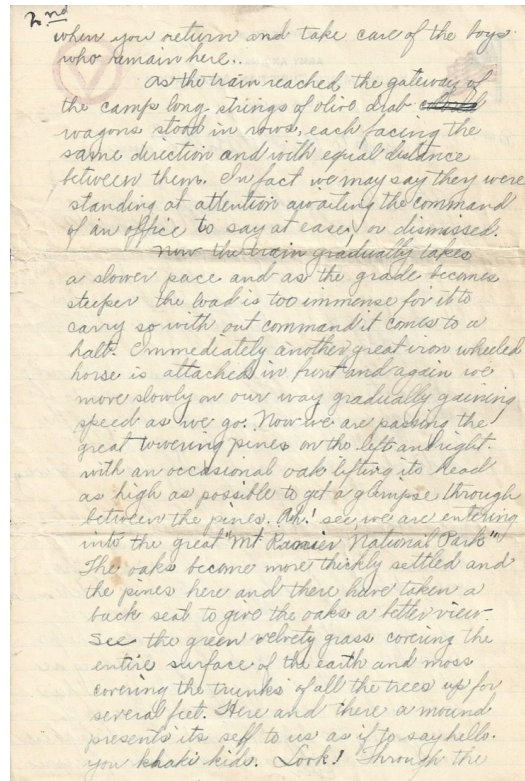 2nd
when you return and take care of the boys
who remain here..
As the train reached the gateway of
the camp long strings of olive drab
wagons stood in rows, each facing the
same direction and with equal distance
between them. In fact we may say they were
standing at attention awaiting the command
of an office to say at ease, or dismissed.
Now the train gradually takes
a slower pace and as the grade becomes
steeper the load is too immense for it to
carry so with out command it comes to a
halt. Immediately another great iron wheeled
horse is attached in front and again we
move slowly on our way gradually gaining
speed as we go. Now we are passing the
great towering pines on the left and right.
with an occasional oak lifting its head
as high as possible to get a glimpse through
between the pines. Ah! see we are entering
into the great "Mt Ranier National Park"
The oaks become more thickly settled and
the pines here and there have taken a
back seat to give the oaks a better view.
See the green velvety grass covering the
entire surface of the earth and moss
covering the trunks of all the trees up for
several feet. Here and there a mound
presents its self to us as if to say hello.
you khaki kids. Look! Through the